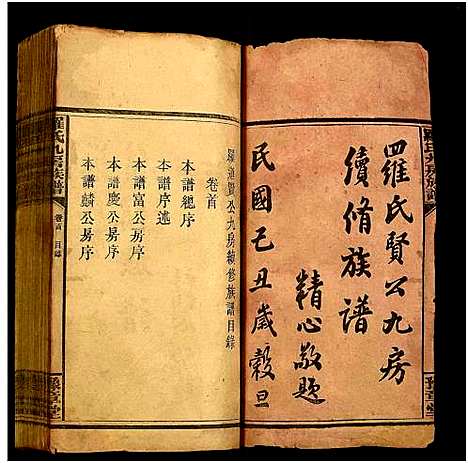 羅氏賢公九房
續脩族譜
精心敬題
民國己丑歲穀旦
豫章堂
羅進賢公九房續修族譜目錄
卷首
本譜總序
本譜序述
本譜富公房序
本譜慶公房序
本譜麟公房序
羅氏九房族譜
卷首 目錄
豫章堂